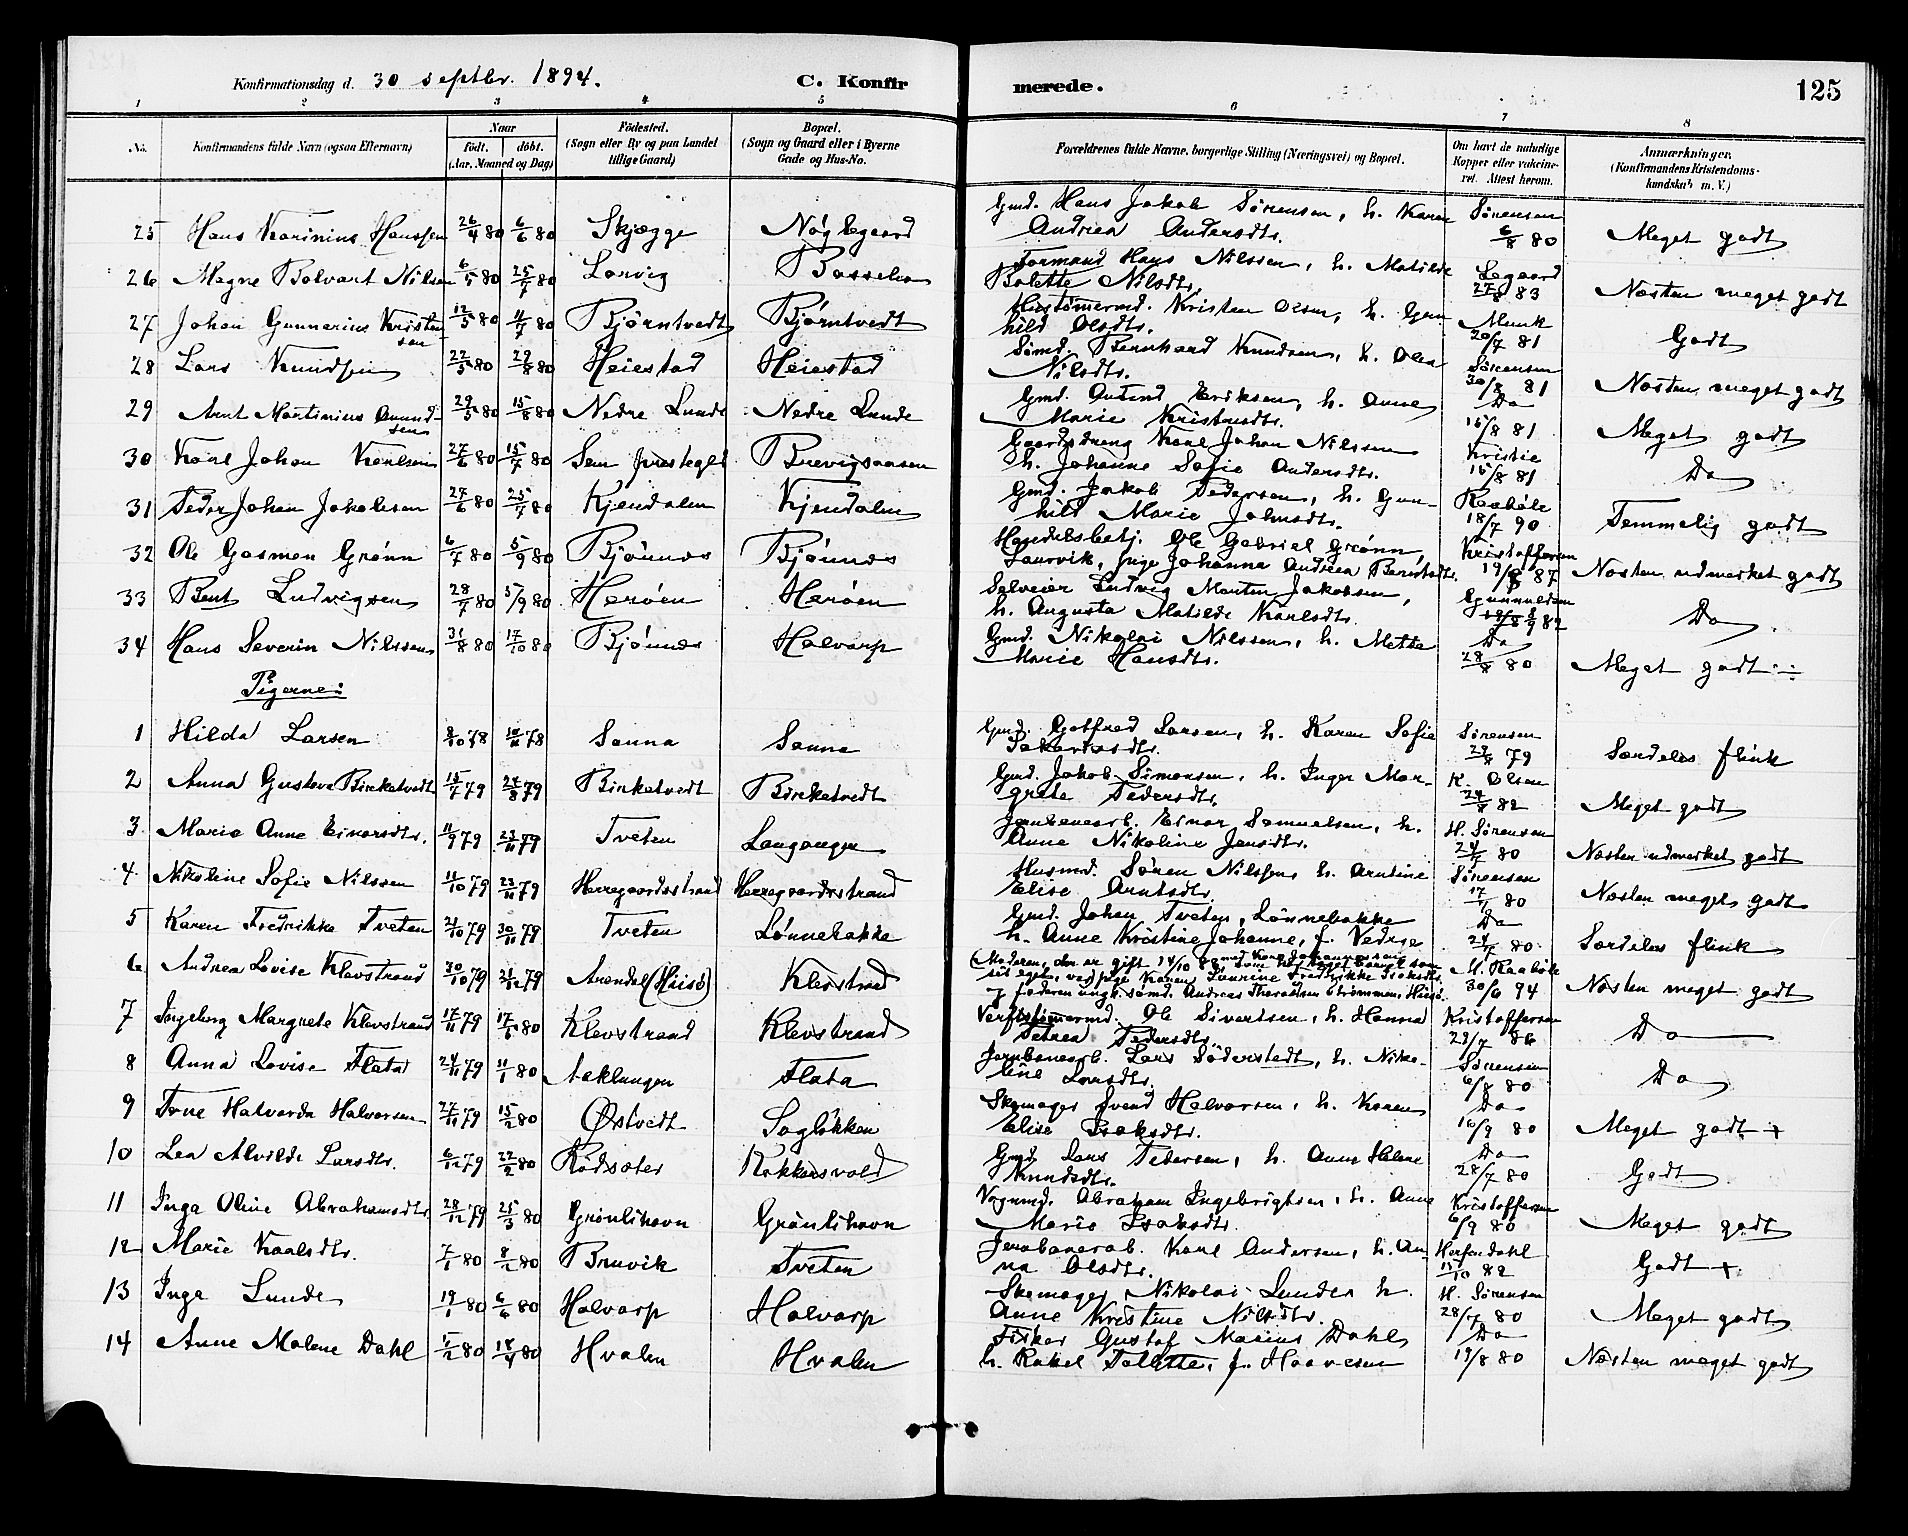 Konfirmationsdag d. 30 septbr. 1894. C. Konfirmerede. 125
1 2 3 4 5 6 7 8
No. Konfirmandens fulde Navn (ogsaa Efternavn) Naar født. døbt. (Aar, Maaned og Dag) Fødested. (Sogn eller By og paa Landet tillige Gaard) Bopæl. (Sogn og Gaard eller i Byerne Gade og Hus-No. Forældrenes fulde Navne, borgerlige Stilling (Næringsvei) og Bopæl. Om havt de naturlige Kopper eller vakcineret. Attest herom. Anmærkninger. (Konfirmandens Kristendomskundskab m. V.)
25 Hans Karinius Hanssen 26/4 80 6/6 80 Skjægge Nøglegaard Gmd. Hans Jakob Sørensen, h. Karen Andrea Andersdtr. Sørensen 6/8 80 Meget godt
26 Magne Bolvart Nilsen 6/5 80 25/7 80 Larvig Basselva Formand Hans Nilssen, h. Matilde Bolette Nilsdtr. Legaard 27/8 83 Næsten meget godt
27 Johan Gunnerius Kristensen 12/5 80 11/7 80 Bjørntvedt Bjørntvedt Hustømermd. Kristen Olsen, h. Gunhild Olsdtr. Munk 20/7 81 Godt
28 Lars Knudsen 22/5 80 29/8 80 Heiestad Heiestad Sømd. Bernhard Knudsen, h. Olea Nilsdtr. Sørensen 30/8 81 Næsten meget godt
29 Arnt Martinius Amundsen 29/5 80 15/8 80 Nedre Lunde Nedre Lunde Gmd. Amund Eriksen, h. Anne Marie Kristensdtr. Do 16/8 81 Meget godt
30 Karl Johan Karlsen 27/6 80 15/7 80 Sem prestegd Brevigsaasen Gaardsdreng Karl Johan Nilssen h. Johanne Sofie Andersdtr. Kristie 15/8 81 Do
31 Peder Johan Jakobsen 27/6 80 25/7 80 Kjendalen Kjendalen Gmd. Jakob Pedersen, h. Gunhild Marie Johnsdtr. Raabøle 18/7 90 Temmelig godt
32 Ole Gasmon Grønn 6/7 80 5/9 80 Bjønnes Bjønnes Handelsbetj. Ole Gabriel Grønn, Laurvik, pige Johanna Andrea Berntsdtr. Kristoffersen 19/8 87 Næsten udmerket godt
33 Bent Ludvigsen 28/7 80 5/9 80 Herøen Herøen Selveier Ludvig Morten Jakobsen, h. Augusta Matilde Karlsdtr. Gunnuldsen 8/9 82 Do
34 Hans Severin Nilssen 31/8 80 17/10 80 Bjønnes Halvarp Gmd. Nikolai Nilssen, h. Mette Marie Hansdtr. Do 28/8 80 Meget godt ÷
Pigerne:
1 Hilda Larsen 8/10 78 10/11 78 Sanna Sanna Gmd. Gotfred Larsen, h. Karen Sofie Sakariasdtr. Sørensen 29/7 79 Særdeles flink
2 Anna Gustava Birketvedt 15/7 79 24/8 79 Birketvedt Birketvedt Gmd. Jakob Simonsen, h. Inger Margrete Pedersdtr. K. Olsen 24/8 82 Meget godt
3 Marie Anne Einarsdtr. 11/9 79 23/11 79 Tveten Langangen Jernbanearb. Einar Samuelsen, h. Anne Nikoline Jensdtr. H. Sørensen 24/7 80 Næsten udmerket godt
4 Nikoline Sofie Nilssen 11/10 79 23/11 79 Herregaardsstrand Herregaardsstrand Husmd. Søren Nilssen, h. Arntine Elise Arntsdtr. Sørensen 17/7 80 Næsten meget godt
5 Karen Fredrikke Tveten 21/10 79 30/11 79 Tveten Lønnebakke Gmd. Johan Tveten, Lønnebakke h. Anne Kristine Johanne, f. Vedge Do 24/7 80 Særdeles flink
6 Andrea Lovise Klevstrand 30/10 79 21/12 79 Arendal (Hiisø) Klevstrand (Moderen, der er gift 14/10 8 med Hans Johannessen, som har taget barnet som sit eget, var) pige Karen Laurine Fredrikke Isaksdtr. og faderen ungk. sømd. Andreas Strømmen, Hiisø. M. Raabøle 30/6 94 Næsten meget godt
7 Ingeborg Margrete Klevstrand 17/11 79 17/5 80 Klevstrand Klevstrand Verftstømermd. Ole Sivertsen, h. Hanna Petrea Pedersdtr. Kristoffersen 29/7 86 Do
8 Anna Lovise Flata 24/11 79 11/1 80 Næklungen Flata Jernbanearb. Lars Søderstedt, h. Nikoline Larsdtr. Sørensen 6/8 80 Do
9 Trne Halvarda Halvorsen 27/11 79 15/2 80 Østvedt Sagløkken Skomager Svend Halvorsen, h. Karen Elise Isaksdtr. Do 16/9 80 Meget godt +
10 Lea Alvilde Larsdtr. 6/12 79 22/2 80 Rødsæter Røkkersvold Gmd. Lars Pedersen, h. Anne Helene Knudsdtr. Do 28/7 80 Godt
11 Inga Oline Abrahamsdtr. 28/12 79 25/3 80 Grønlihavn Grønlihavn Vognmd. Abraham Ingebrigtsen, h. Anne Marie Isaksdtr. Kristoffersen 6/9 80 Meget godt
12 Marie Karlsdtr. 7/1 80 8/2 80 Bruvik Tveten Jernbanearb. Karl Andersen, h. Anna Olsdtr. Herfendahl 15/10 82 Godt +
13 Inga Lunde 19/1 80 6/6 80 Halvarp Halvarp Skomager Nikolai Lunde, h. Anne Kristine Nilsdtr. H. Sørensen 28/7 80 Meget godt
14 Anne Malene Dahl 15/2 80 18/4 80 Hvalen Hvalen Fisker Gustaf Marius Dahl h. Rakel Tallette, f. Haavesen Do 19/8 80 Næsten meget godt